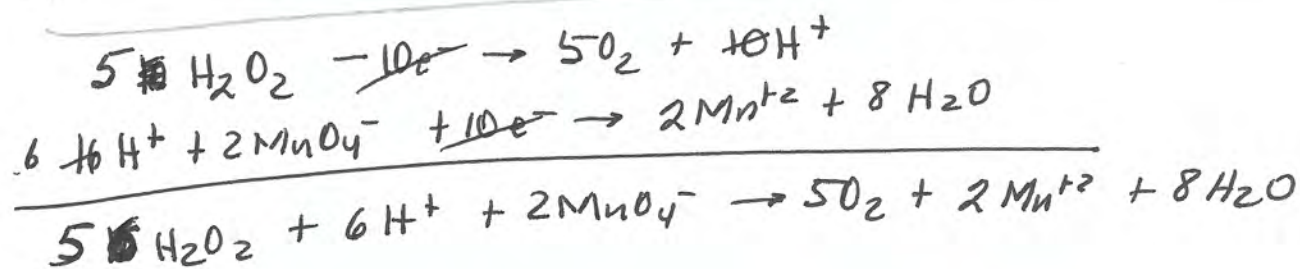 5 H₂O₂ - 10e⁻ → 5O₂ + 10H⁺
6 16 H⁺ + 2MnO₄⁻ + 10e⁻ → 2Mn⁺² + 8 H₂O
5 H₂O₂ + 6H⁺ + 2MnO₄⁻ → 5O₂ + 2Mn⁺² + 8H₂O